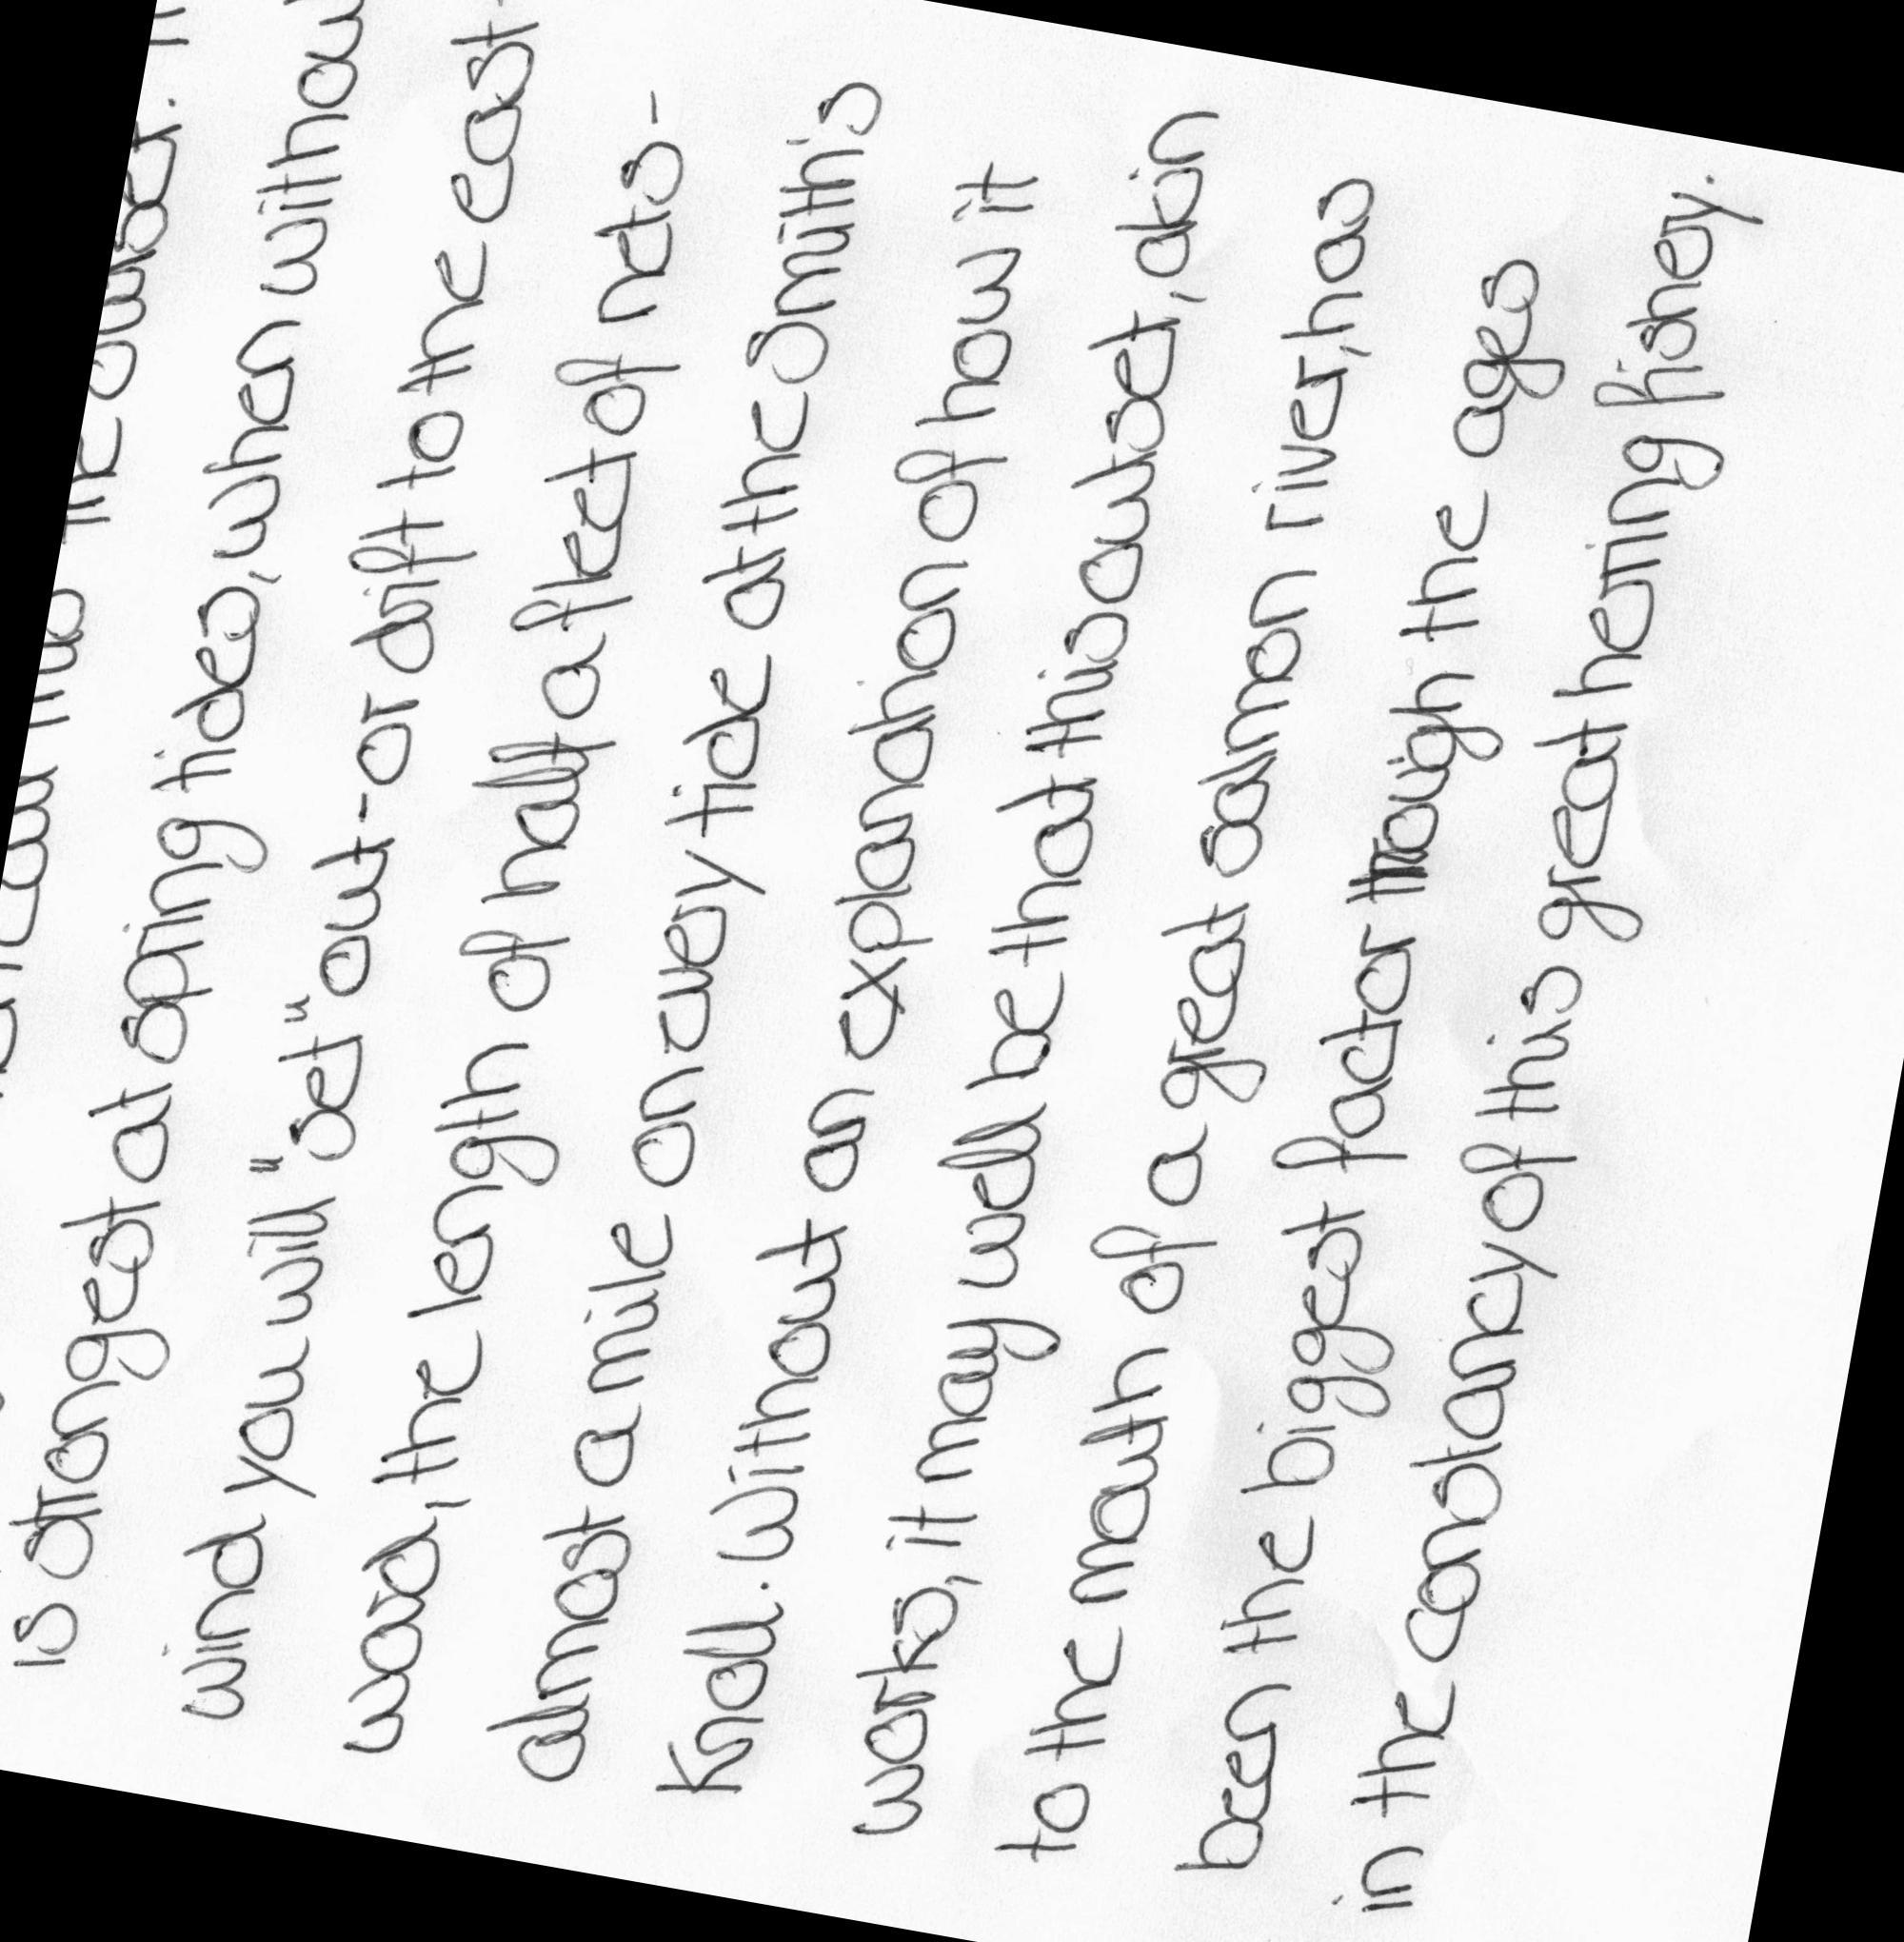 the outset.
is strongest at spring tides, when without
wind you will "set" out - or drift to the east-
ward, the length of half a fleet of nets -
almost a mile on every tide at the Smith's
Knoll. Without an explanation of how it
works, it may well be that this outset, akin
to the mouth of a great salmon river, has
been the biggest factor through the ages
in the constancy of this great herring fishery.